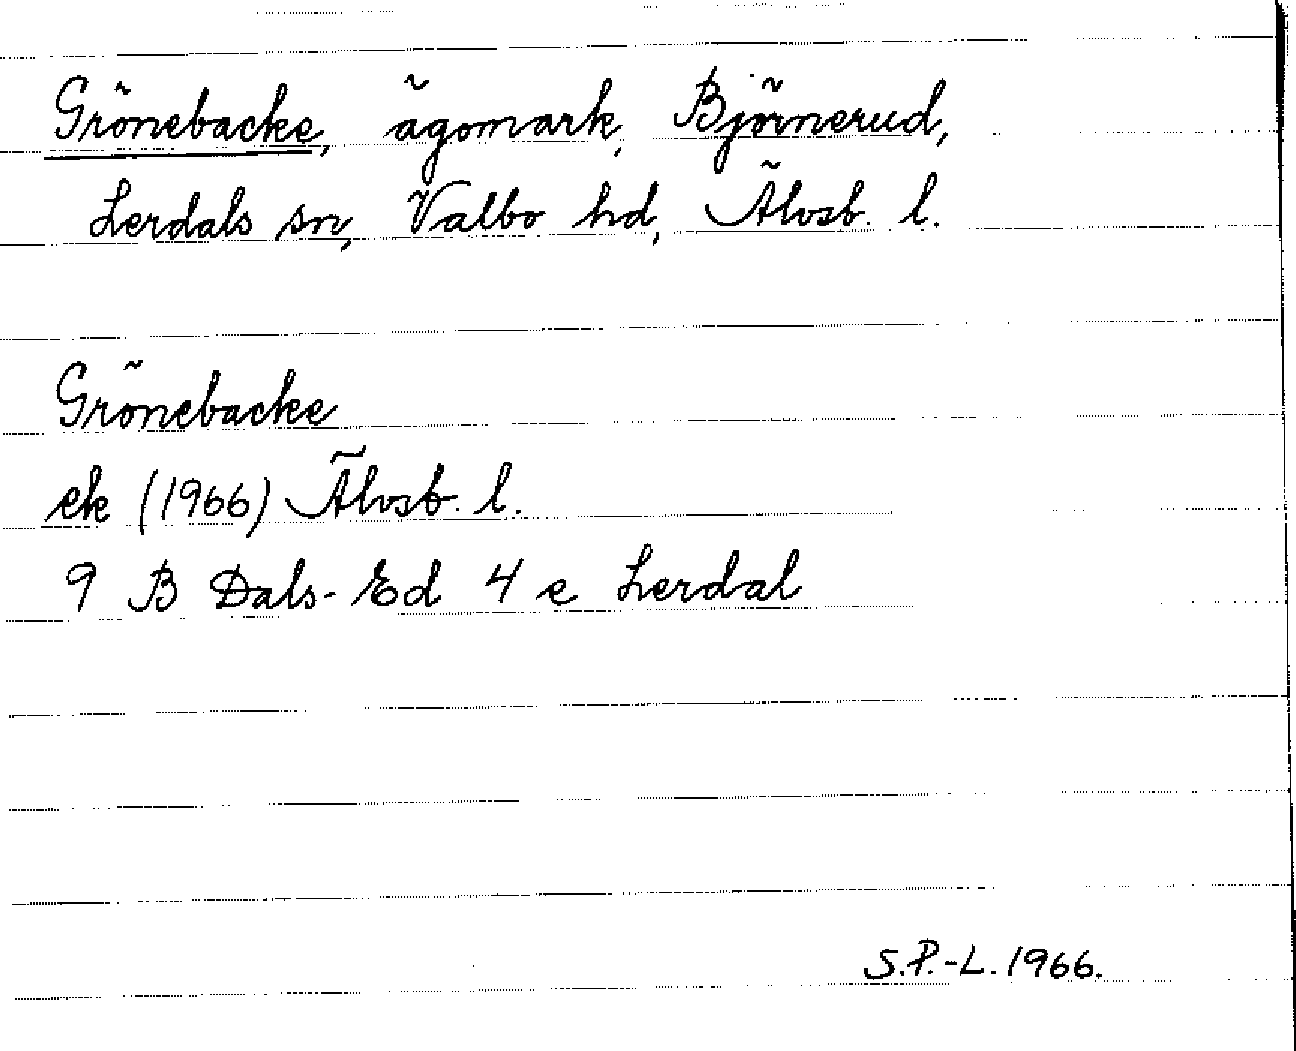 Grönebacke, ägomark, Björnerud,
Lerdals sn, Valbo hd, Älvsb. l.
Grönebacke
ek (1966) Älvsb. l.
9 B Dals-Ed 4 e Lerdal
S.P.-L. 1966.